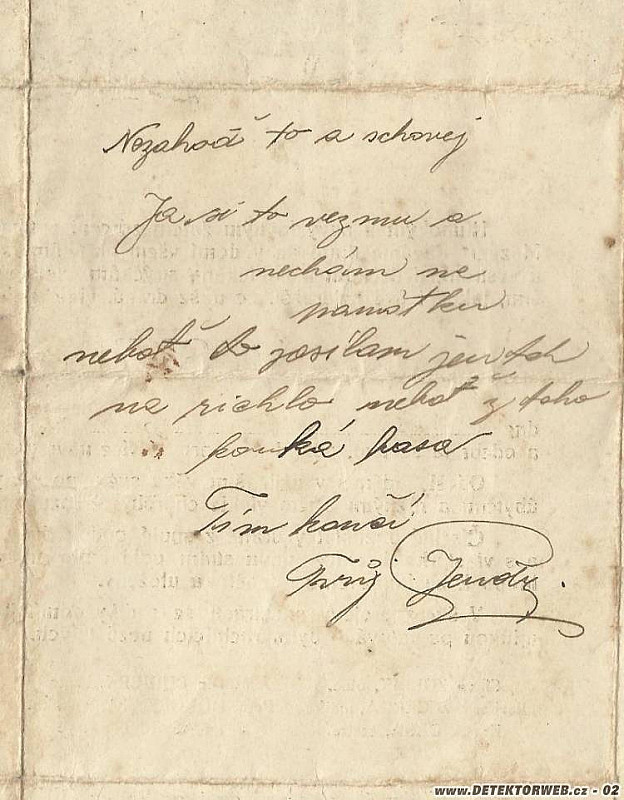 Nezahoď to a schovej
Ja si to vezmu a
nechám na
památku
neboť to posílam jen tak
na richlo neboť z toho
kouká basa
Tím končí
Tvůj Jenda.
www.DETEKTORWEB.cz - 02